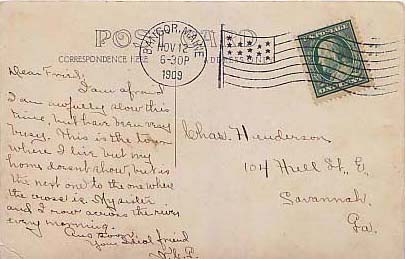 POST CARD
CORRESPONDENCE HERE
BANGOR, MAINE
NOV 12
6-30P
1909
Dear Friend,
I am afraid
I am awfully slow this
time, but have been very
busy. This is the town
where I live but my
home doesnt show, but is
the next one to the one where
the cross is. My sister
and I row across the river
every morning.
Ans soon.
Your Ideal friend
Chas. Henderson
104 Hull St., E.
Savannah.
Ga.